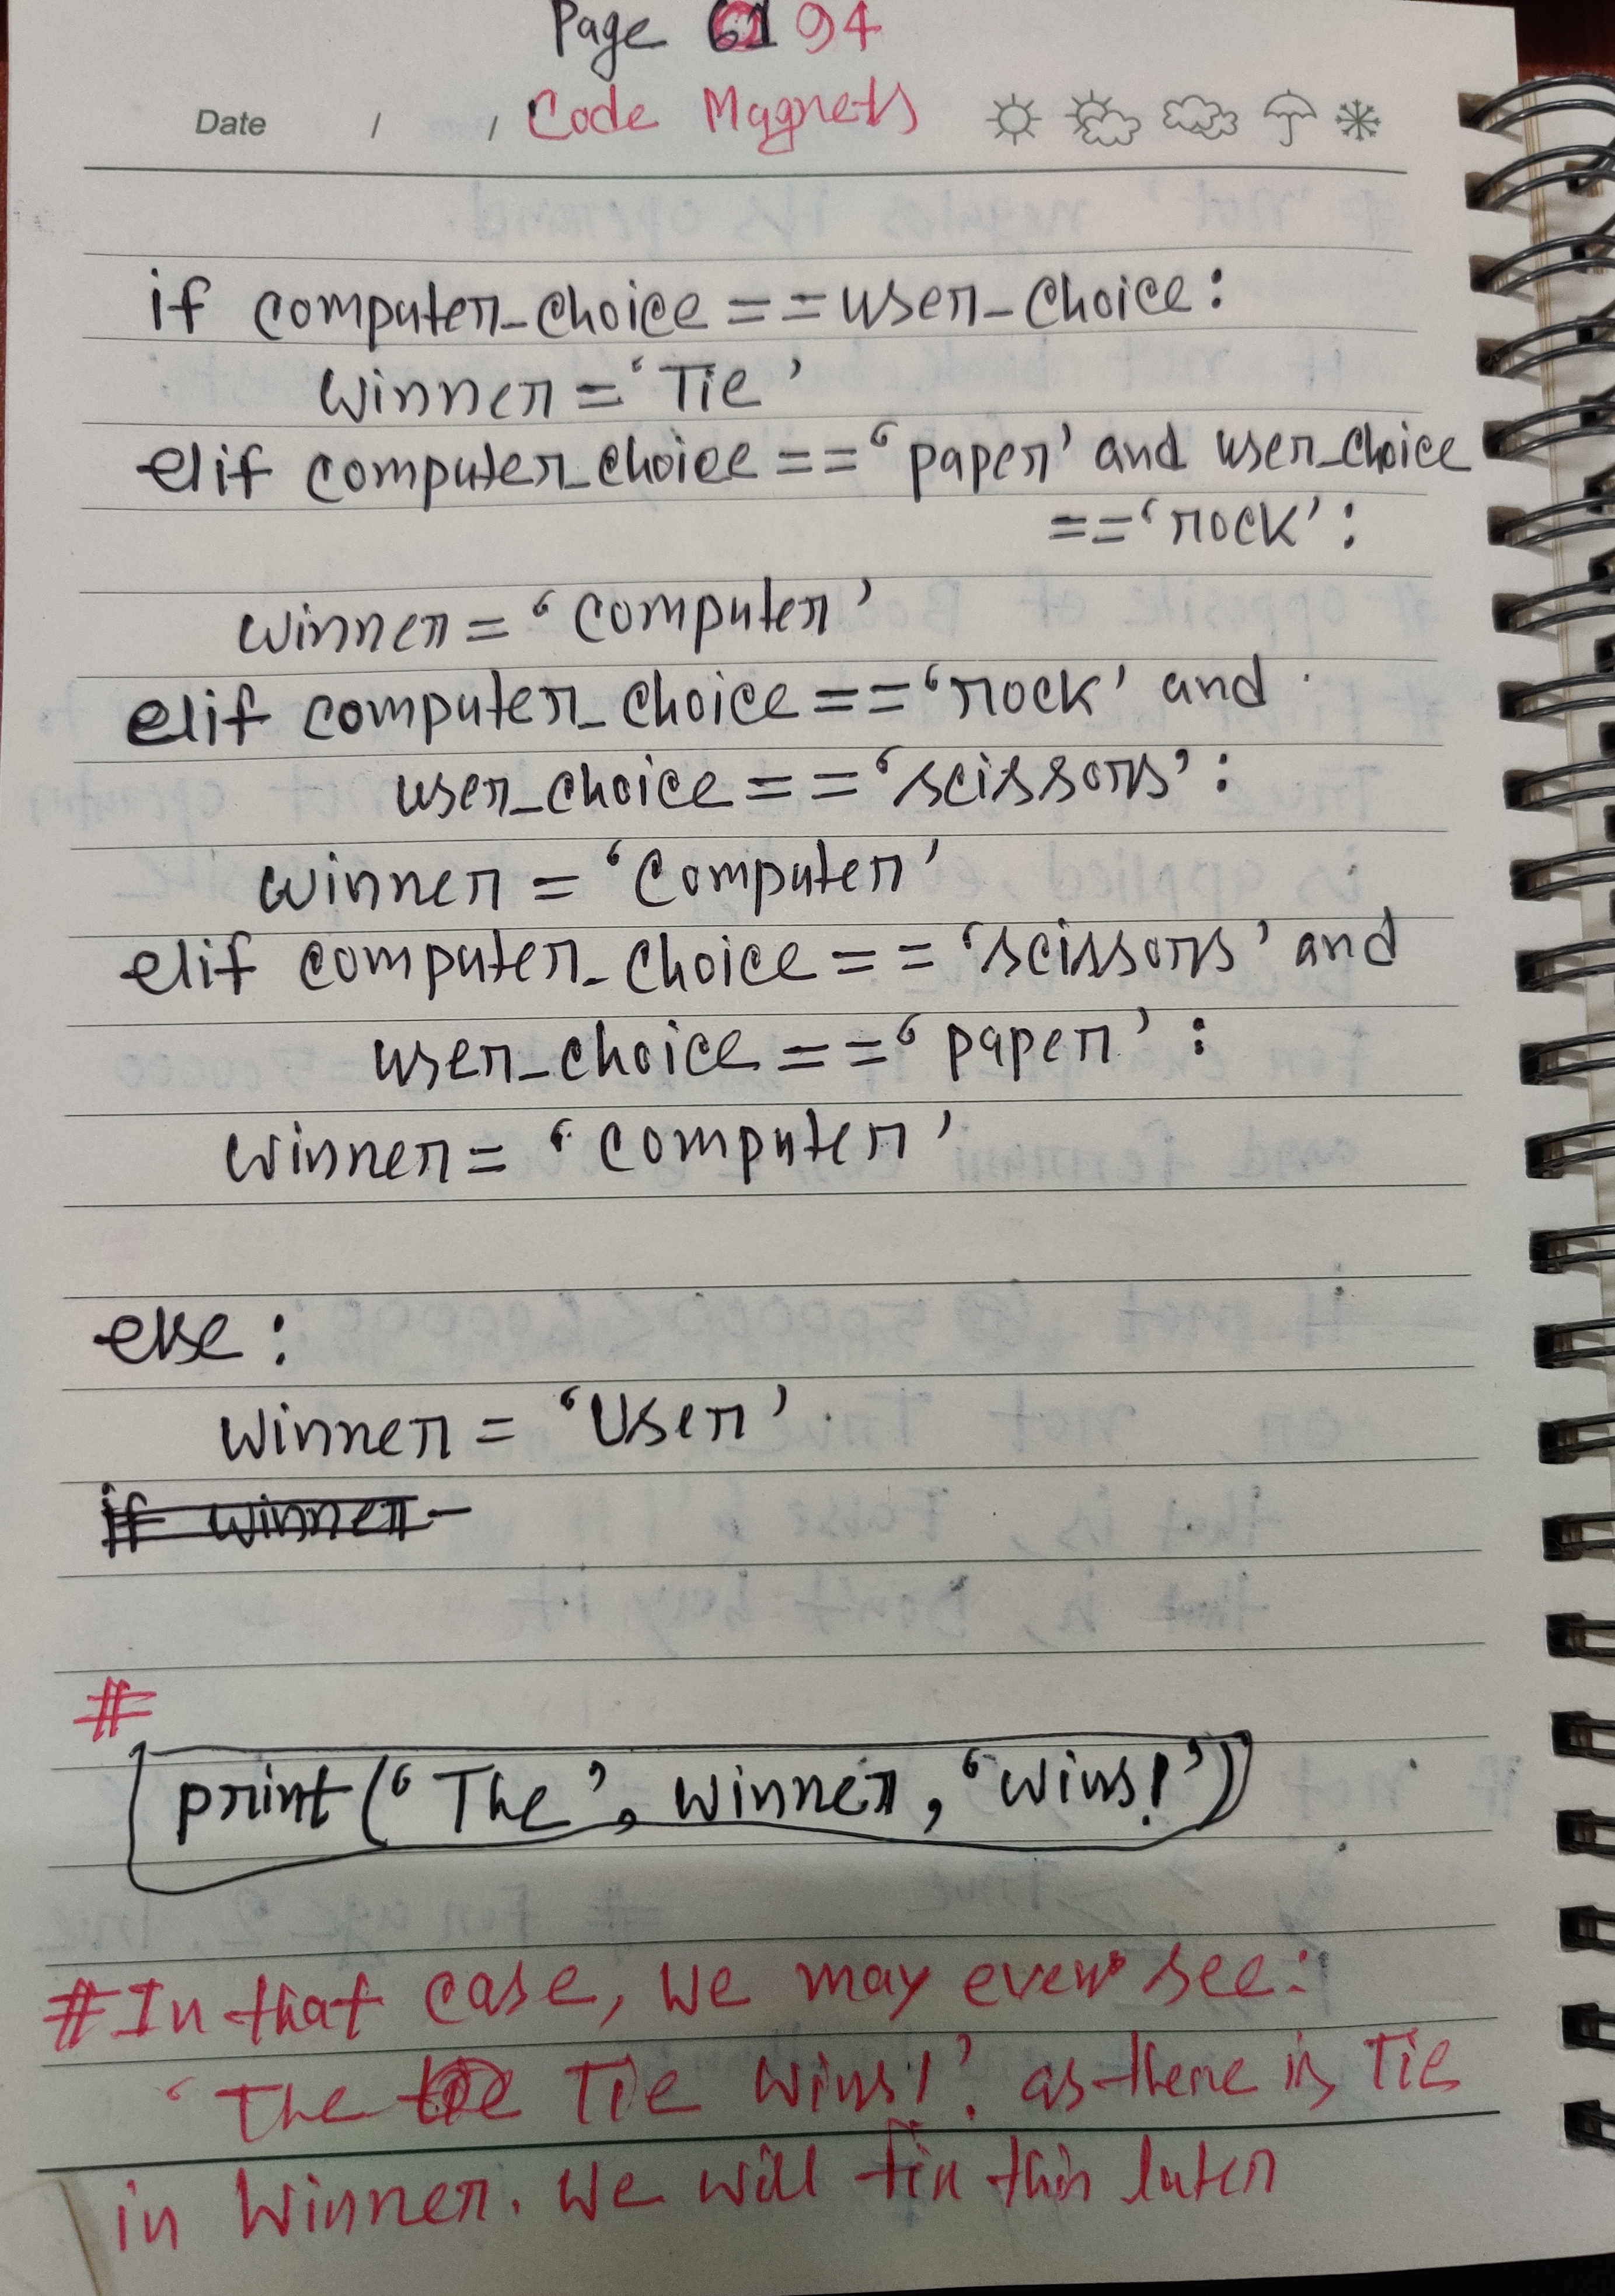 Page 94
Date / / Code Magnets
if computer_choice==user_choice:
winner='Tie'
elif computer_choice=='paper' and user_choice
=='rock':
winner='Computer'
elif computer_choice=='rock' and
user_choice=='scissors':
winner='Computer'
elif computer_choice=='scissors' and
user_choice=='paper':
winner='Computer'
else:
winner='User'
if winner
#
print('The', winner, 'wins!')
#In that case, we may even see:
'The Tie wins!'. as there is Tie
in winner. We will fix this later